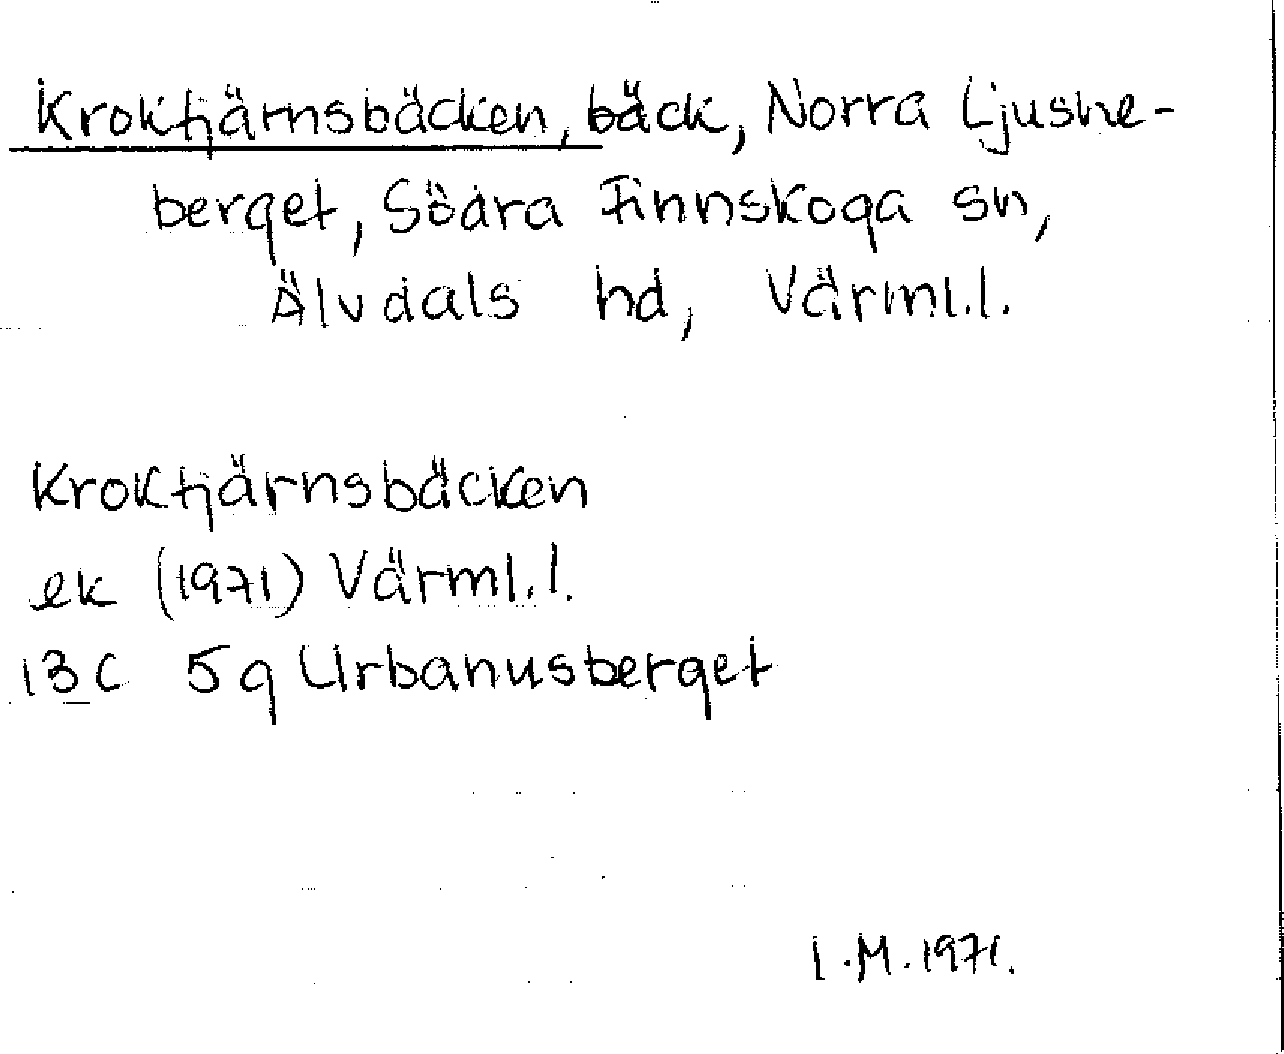 Kroktjärnsbäcken, bäck, Norra Ljusne-
berget, Södra Finnskoga sn,
Älvdals hd, Värml.l.
Kroktjärnsbäcken
ek (1971) Värml.l.
13C 5g Urbanusberget
I.M.1971.